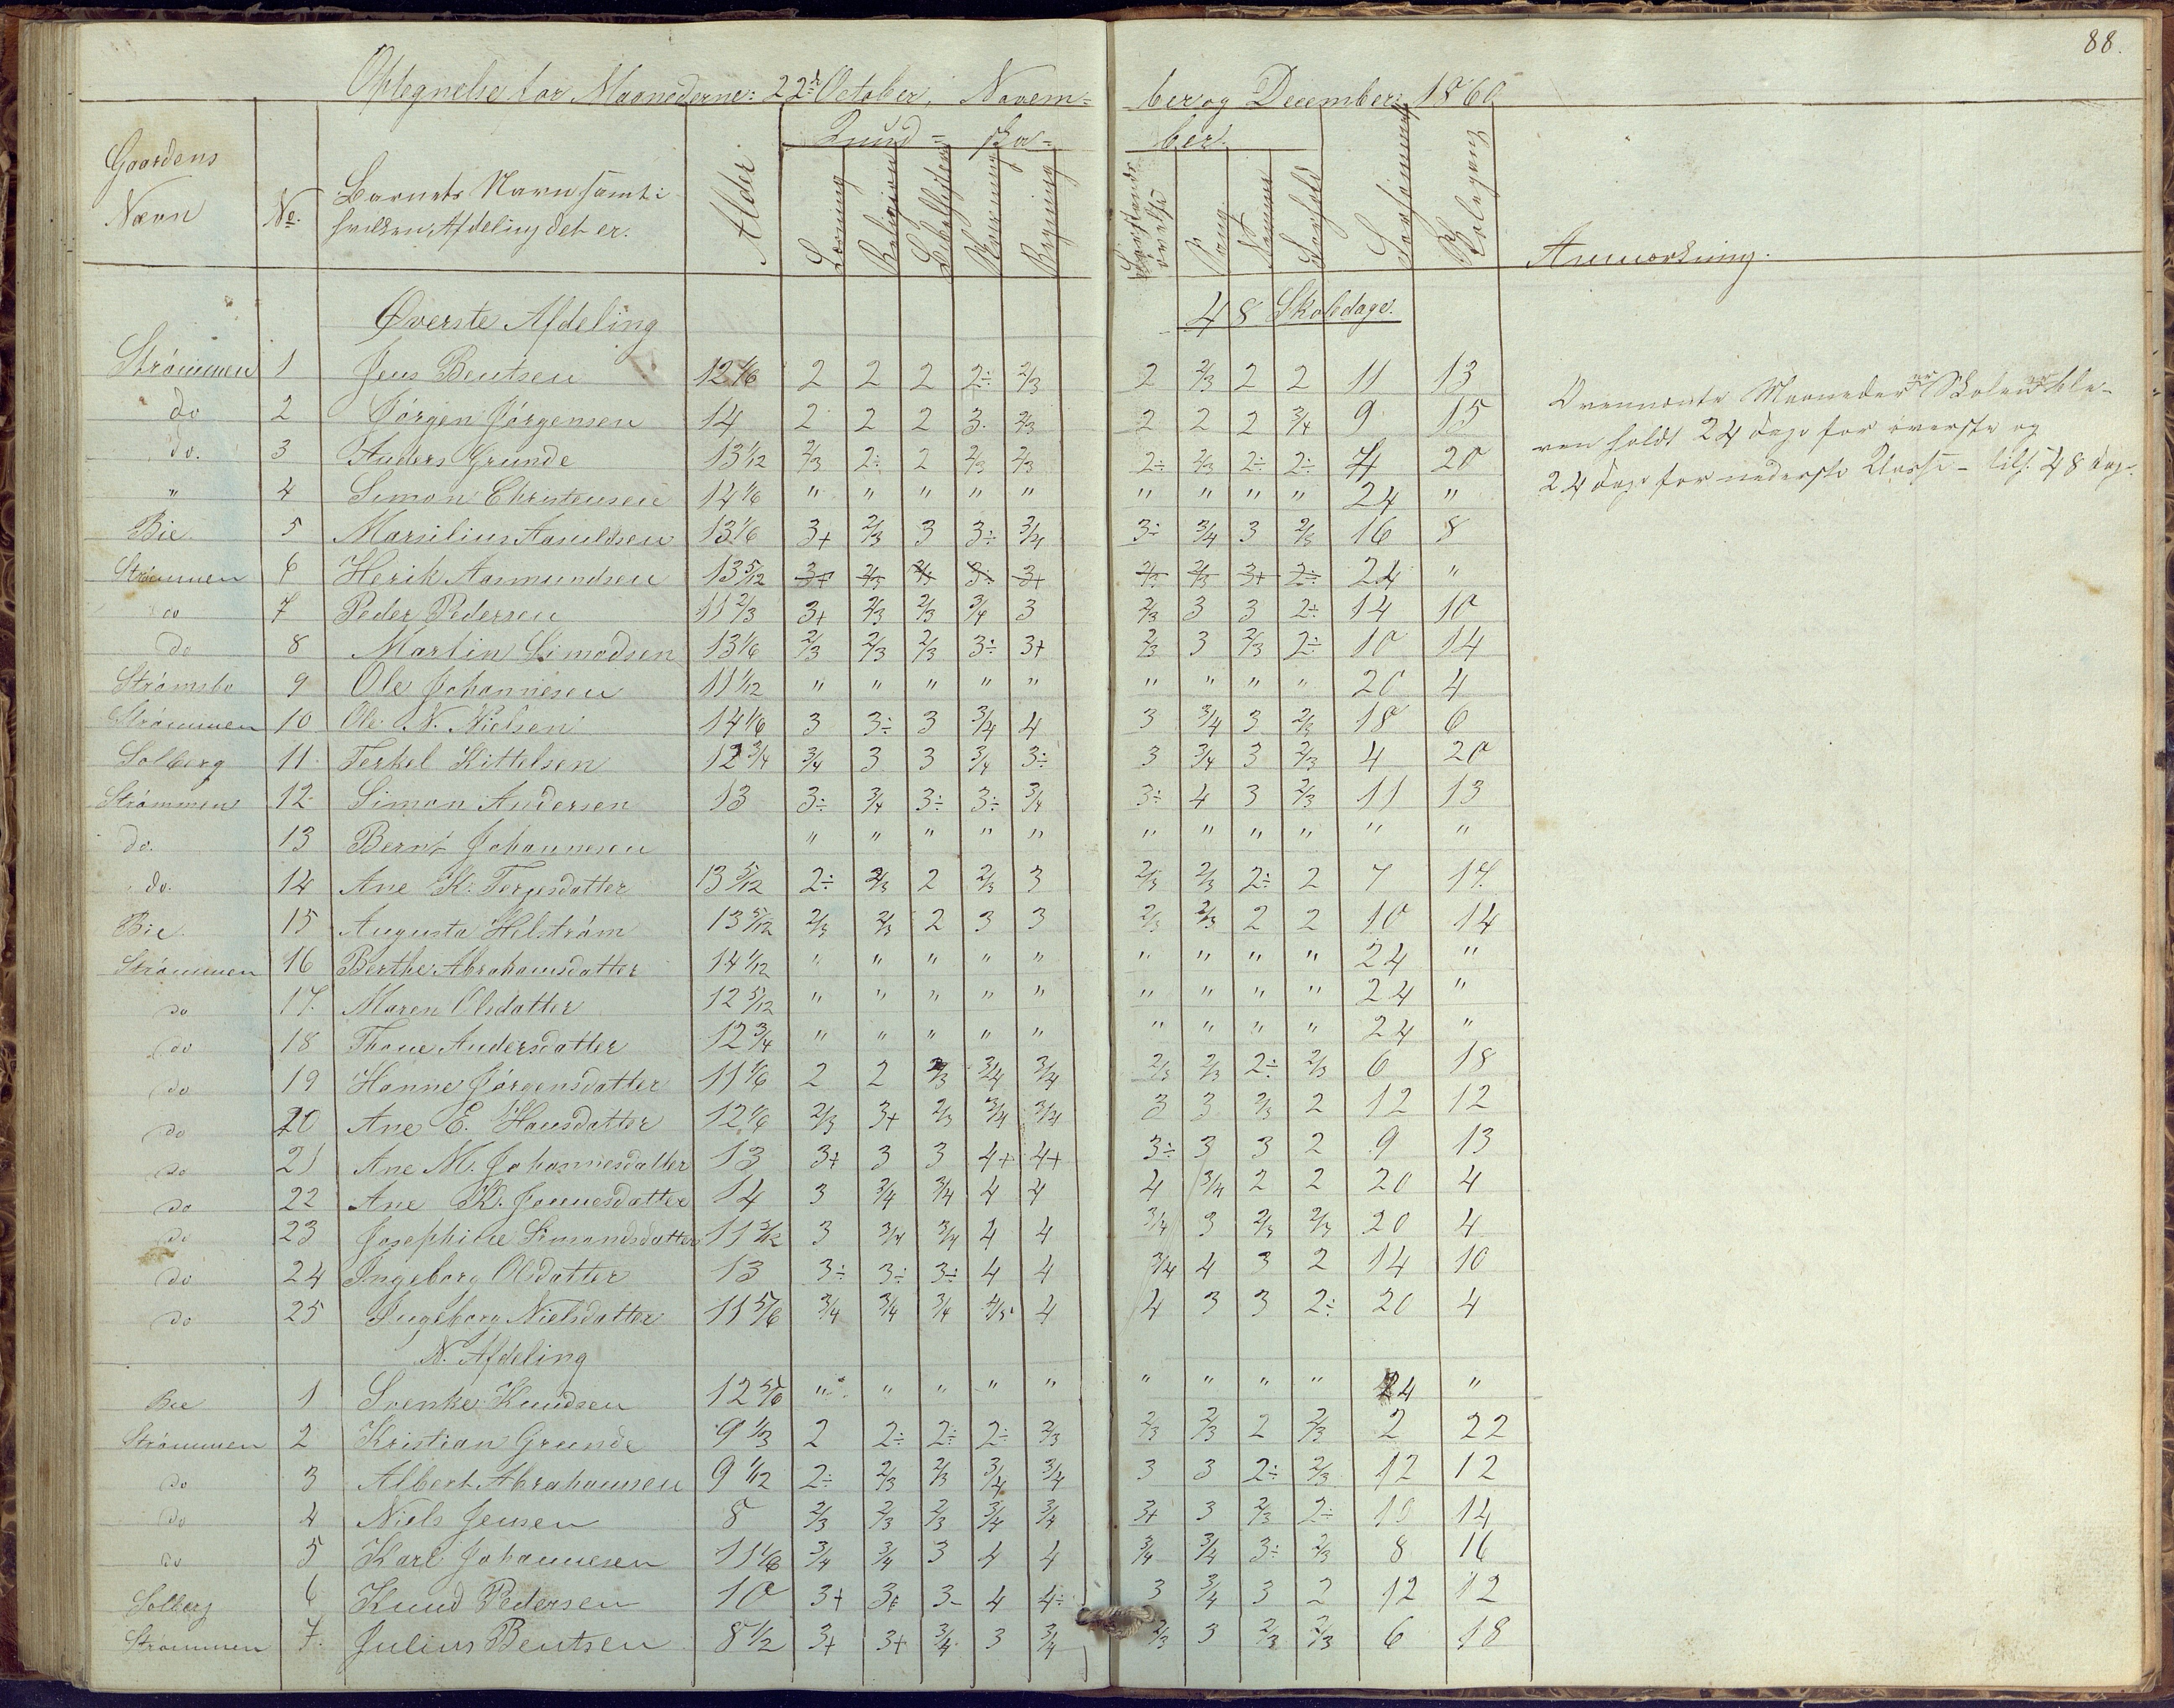 88.
Optegnelse for Maanederne: 22de October, Novem= ber og December 1860
Gaardens Navn | No. | Barnets Navn samt i hvilken Afdeling det er. | Alder | Kund= ska= ber. | Læsning | Religion | Bibelhistorie | Skrivning | Regning | Sang | Forsømmer | Skolegang | Anmærkning.
Øverste Afdeling | 48 Skoledage.
Strømmen 1 Jens Bentsen 12 1/6 2 2 2 2÷ 2/3 2 2/3 2 2 11 13
do 2 Jørgen Jørgensen 14 2 2 2 3. 2/3 2 2 2 3/4 9 15
do. 3 Anders Grunde 13 1/12 2/3 2÷ 2 2/3 2/3 2÷ 2/3 2÷ 2÷ 4 20
" 4 Simon Christensen 14 1/6 " " " " " " " " " 24 "
Bie 5 Marsilius Aanildsen 13 1/6 3+ 2/3 3 3÷ 3/4 3÷ 3/4 3 2/3 16 8
Strømmen 6 Herik Aasmundsen 13 5/12 3+ 2/3 2/3 3÷ 3+ 2/3 2/3 3+ 2÷ 24 "
do 7 Peder Pedersen 11 2/3 3+ 2/3 2/3 3/4 3 2/3 3 3 2÷ 14 10
do 8 Martin Simodsen 13 1/6 2/3 2/3 2/3 3÷ 3+ 2/3 3 2/3 2÷ 10 14
Strømsbo 9 Ole Johannesen 11 1/12 " " " " " " " " " 20 4
Strømmen 10 Ole N. Nielsen 14 1/6 3 3÷ 3 3/4 4 3 3/4 3 2/3 18 6
Solberg 11 Terkel Kittelsen 12 3/4 3/4 3 3 3/4 3÷ 3 3/4 3 2/3 4 20
Strømmen 12 Simon Andersen 13 3÷ 3/4 3÷ 3÷ 3/4 3÷ 4 3 2/3 11 13
do. 13 Bernt Johannesen " " " " " " " " " " "
do. 14 Ane K. Terjesdatter 13 5/12 2÷ 2/3 2 2/3 3 2/3 2/3 2÷ 2 7 14.
Bie 15 Augusta Helstrøm 13 5/12 2/3 2/3 2 3 3 2/3 2/3 2 2 10 14
Strømmen 16 Berthe Abrahamsdatter 14 1/12 " " " " " " " " " 24 "
do 17. Maren Olsdatter 12 5/12 " " " " " " " " " 24 "
do 18 Thone Andersdatter 12 3/4 " " " " " " " " " 24 "
do 19 Hanne Jørgensdatter 11 1/6 2 2 2/3 3/4 3/4 2/3 2/3 2÷ 2/3 6 18
do 20 Ane E. Hansdatter 12 1/6 2/3 3+ 2/3 3/4 3/4 3 3 2/3 2 12 12
do 21 Ane M. Johannesdatter 13 3+ 3 3 4+ 4+ 3÷ 3 3 2 9 13
do 22 Ane K. Jonnesdatter 14 3 3/4 3/4 4 4 4 3/4 2 2 20 4
do 23 Josephine Simondsdatter 11 3/12 3 3/4 3/4 4 4 3/4 3 2/3 2/3 20 4
do 24 Ingeborg Olsdatter 13 3÷ 3÷ 3÷ 4 4 3/4 4 3 2 14 10
do 25 Ingeborg Nielsdatter 11 5/6 3/4 3/4 3/4 4/5 4 4 3 3 2÷ 20 4
N. Afdeling
Bie 1 Svenke Knudsen 12 5/6 " " " " " " " " " 24 "
Strømmen 2 Kristian Grunde 9 1/3 2 2÷ 2÷ 2÷ 2/3 2/3 2/3 2 2/3 2 22
do 3 Albert Abrahamsen 9 1/12 2÷ 2/3 2/3 3/4 3/4 3 3 2÷ 2/3 12 12
do 4 Niels Jensen 8 2/3 2/3 2/3 3/4 3/4 3+ 3 2/3 2÷ 10 14
do 5 Karl Johannesen 11 1/6 3/4 3/4 3 4 4 3/4 3/4 3÷ 2/3 8 16
Solberg 6 Knud Pedersen 10 3+ 3+ 3- 4 4÷ 3 3/4 3 2 12 12
Strømmen 7. Julius Bentsen 8 1/2 3+ 3+ 3/4 3 3/4 2/3 3 2/3 2/3 6 18
Ovennævnte Maaneder er Skolen ble-
ven holdt 24 dage for øverste og
24 dage for nederste Classe - tils. 48 dage.